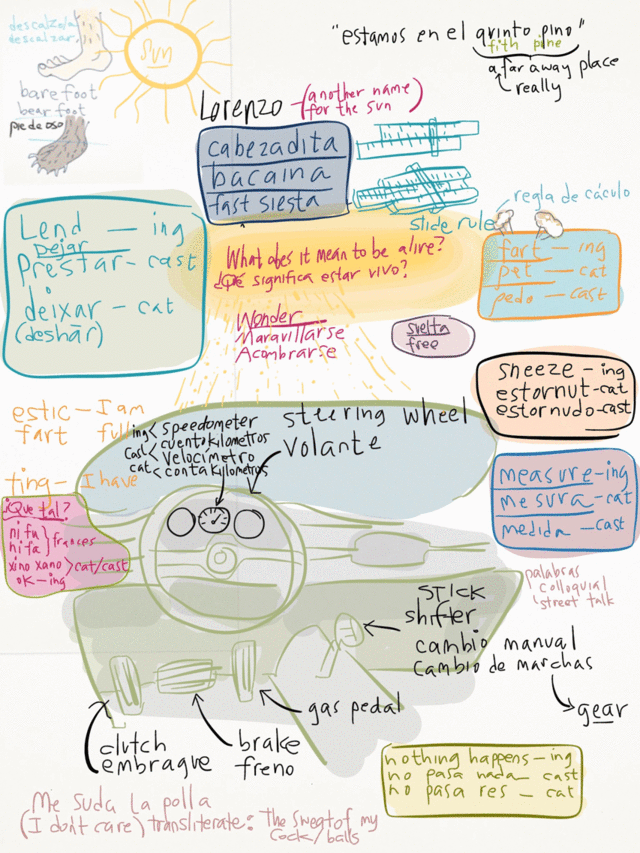 descalzada
descalzar
sun
bare foot
bear foot
pie de oso
"estamos en el qvinto pino"
fith pine
a far away place
really
Lorenzo - (another name
for the sun)
cabezadita
bacaina
fast siesta
slide rule
regla de cáculo
Lend — ing
Dejar
prestar - cast
deixar - cat
(deshar)
What does it mean to be alive?
¿Qué significa estar vivo?
Wonder
Maravillarse
Acombrarse
svelta
free
fart — ing
pet — cat
pedo — cast
sneeze - ing
estornut - cat
estornudo - cast
estic - I am
fart full
ting - I have
ing < speedometer
cast < cuentakilometros
velocímetro
cat < contakilometros
steering wheel
volante
measure - ing
mesura - cat
medida - cast
¿Que tal?
ni fu
ni fa } frances
xino xano > cat/cast
ok - ing
palabras
colloquial
street talk
stick
shifter
cambio manual
cambio de marchas
gear
gas pedal
clutch
embrague
brake
freno
nothing happens - ing
no pasa nada - cast
no pasa res - cat
Me suda la polla
(I don't care) transliterate: The sweat of my
cock/balls